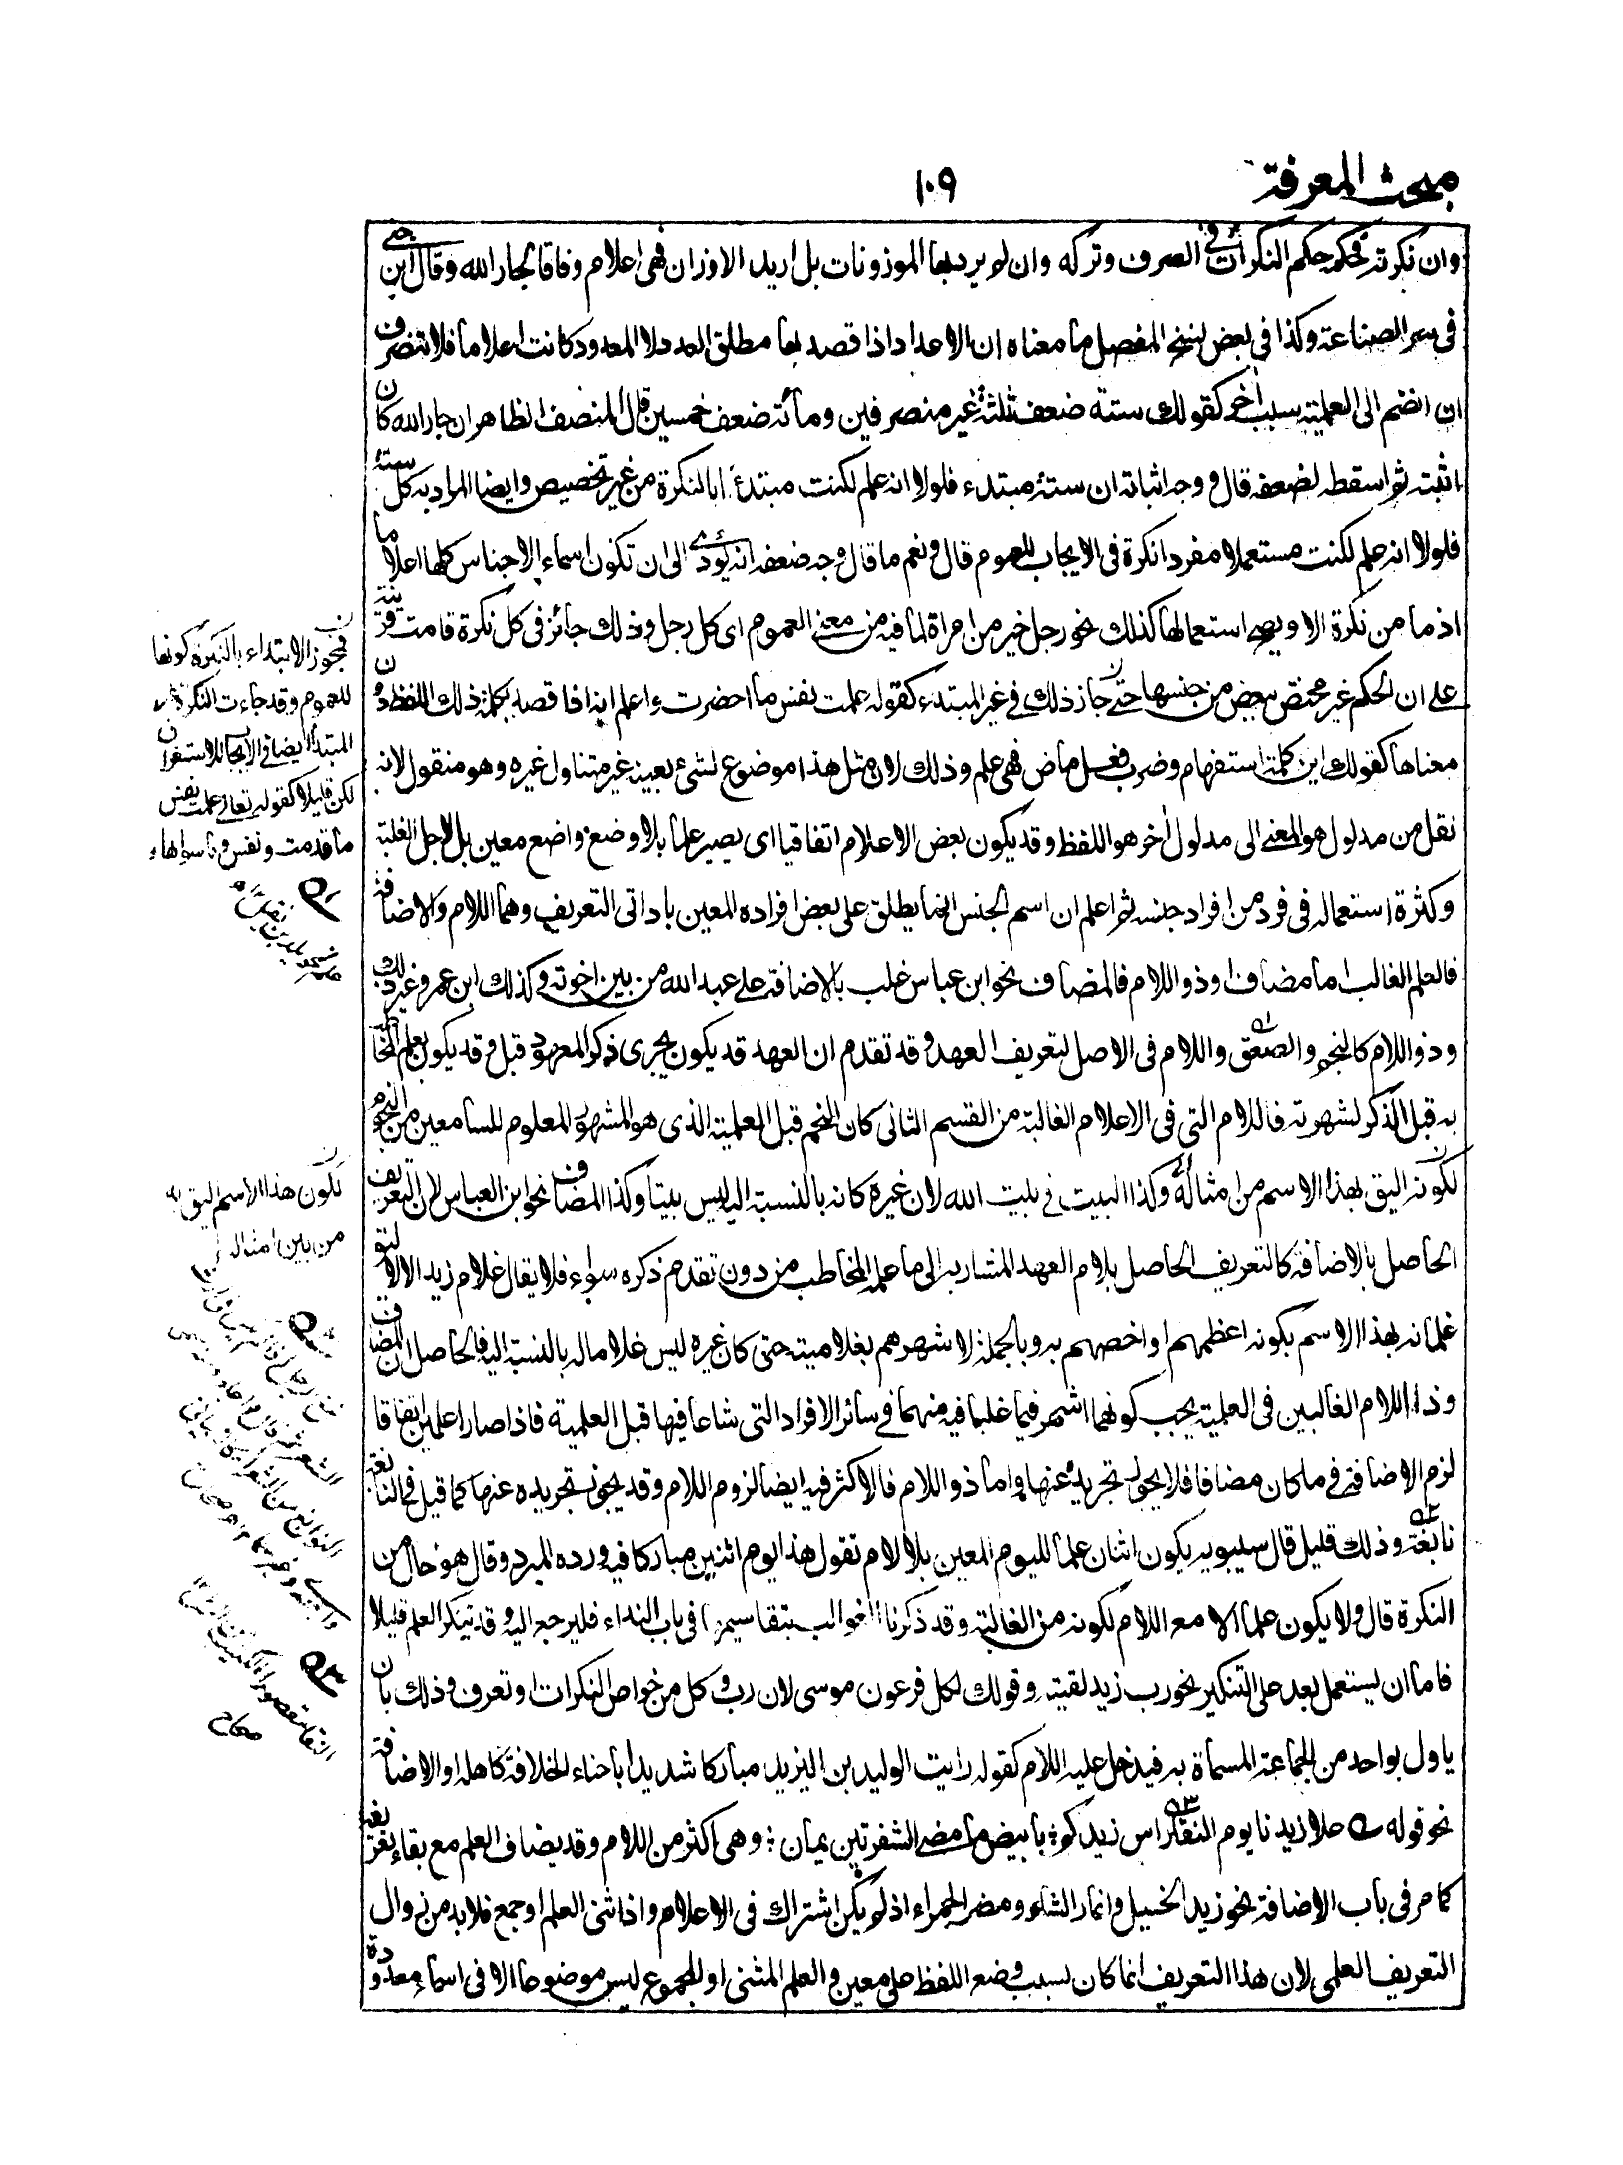 مبحث المعرفة
١٠٩
وان نكرته فحكمه حكم النكرات في الصرف وتركه وان لم يرد بها الموزونات بل اريد الاوزان فهى اعلام وفاقا لجار الله وقال ابن جنى
فى سر الصناعة وكذا فى بعض نسخ المفصل ما معناه ان الاعداد اذا قصد بها مطلق العدد لا المعدود كانت اعلاما فلا تنصرف
ان انضم الى العلمية سبب اخر كقولك ستة ضعف ثلثة غير منصرفين ومائة ضعف خمسين قال المنصف الظاهر ان جار الله كان
اثبته ثم اسقطه لضعفه قال ووجه اثباته ان ستة مبتدء فلولا انه علم لكنت مبتدئا بالنكرة من غير تخصيص وايضا المراد به كل ستة
فلولا انه علم لكنت مستعملا مفردا نكرة فى الايجاب للعموم قال ونعم ما قال وجه ضعفه انه يؤدى الى ان تكون اسماء الاجناس كلها اعلاما
اذ ما من نكرة الا ويصح استعمالها كذلك نحو رجل خير من امراة لما فيه من معنى العموم اى كل رجل وذلك جائز فى كل نكرة قامت قرينة
على ان الحكم غير مختص ببعض من جنسها حتى جاز ذلك فى غير المبتدء كقوله علمت نفس ما احضرت واعلم انه اذا قصد بكلمة ذلك اللفظ دون
معناها كقولك اين كلمة استفهام وضرب فعل ماض فهى علم وذلك لان مثل هذا موضوع لشىء بعينه غير متناول غيره وهو منقول لانه
نقل من مدلول هو المعنى الى مدلول آخر هو اللفظ وقد يكون بعض الاعلام اتفاقيا اى يصير علما بلا وضع واضع معين بل لاجل الغلبة
وكثرة استعماله فى فرد من افراد جنسه ثم اعلم ان اسم الجنس انما يطلق على بعض افراده المعين باداتى التعريف وهما اللام والاضافة
فالعلم الغالب اما مضاف او ذو اللام فالمضاف نحو ابن عباس غلب بالاضافة على عبد الله من بين اخوته وكذلك ابن عمر وغير ذلك
وذو اللام كالنجم والصعق واللام فى الاصل لتعريف العهد وقد تقدم ان العهد قد يكون بجرى ذكر المعهود قبل وقد يكون بعلم المخاطب
به قبل الذكر لشهرته فاللام التى فى الاعلام الغالبة من القسم الثانى كان النجم قبل العلمية الذى هو المشهور المعلوم للسامعين من النجوم
لكونه اليق بهذا الاسم من امثاله وكذا البيت فى بيت الله لان غيره كانه بالنسبة اليه ليس بيتا وكذا المضاف نحو ابن العباس لان التعريف
الحاصل بالاضافة كالتعريف الحاصل بلام العهد المشار به الى ما علمه المخاطب من دون تقدم ذكره سواء فلا يقال غلام زيد الا لاليق
غلمانه بهذا الاسم بكونه اعظمهم او اخصهم به وبالجملة لاشهرهم بغلاميته حتى كان غيره ليس غلاما له بالنسبة اليه فالحاصل ان المضاف
وذا اللام الغالبين فى العلمية يجب كونهما اشهر فيما غلبا فيه منهما فى سائر الافراد التى شاعا فيها قبل العلمية فاذا صارا علمين اتفاقا
لزم الاضافة فى ما كان مضافا فلا يجوز تجريده عنها واما ذو اللام فالاكثر فيه ايضا لزوم اللام وقد يجوز تجريده عنها كما قيل فى النابغة
نابغة وذلك قليل قال سيبويه يكون اثنان علما لليوم المعين بلا لام تقول هذا يوم اثنين مباركا فيه ورده المبرد وقال هو حال من
النكرة قال ولا يكون علما الا مع اللام لكونه من الغالبة وقد ذكرنا الغوالب بتقاسيمها فى باب النداء فليرجع اليه وقد ينكر العلم قليلا
فاما ان يستعمل بعد على التنكير نحو رب زيد لقيته وقولك لكل فرعون موسى لان رب وكل من خواص النكرات او تعرف وذلك بان
ياول بواحد من الجماعة المسماة به فيدخل عليه اللام كقوله رايت الوليد بن اليزيد مباركا شديدا باحناء الخلافة كاهله او الاضافة
نحو قوله علا زيدنا يوم النقا راس زيدكم بابيض ماضى الشفرتين يمان وهى اكثر من اللام وقد يضاف العلم مع بقاء تعريفه
كما مر فى باب الاضافة نحو زيد الخيل وانمار الشاء ومضر الحمراء اذ لم يكن اشتراك فى الاعلام واذا ثنى العلم او جمع فلا بد من زوال
التعريف العلمى لان هذا التعريف انما كان بسبب وضع اللفظ على معين والعلم المثنى او المجموع ليس موضوعا الا فى اسماء معدودة
فيجوز الابتداء بالنكرة كونها
للعموم وقد جاءت النكرة
المبتدأ ايضا فى الايجاب للاستغراق
لكن قليلا كقوله تعالى علمت نفس
ما قدمت ونفس وما سواها
لكون هذا الاسم اليق به
من بين امثاله
صحاح